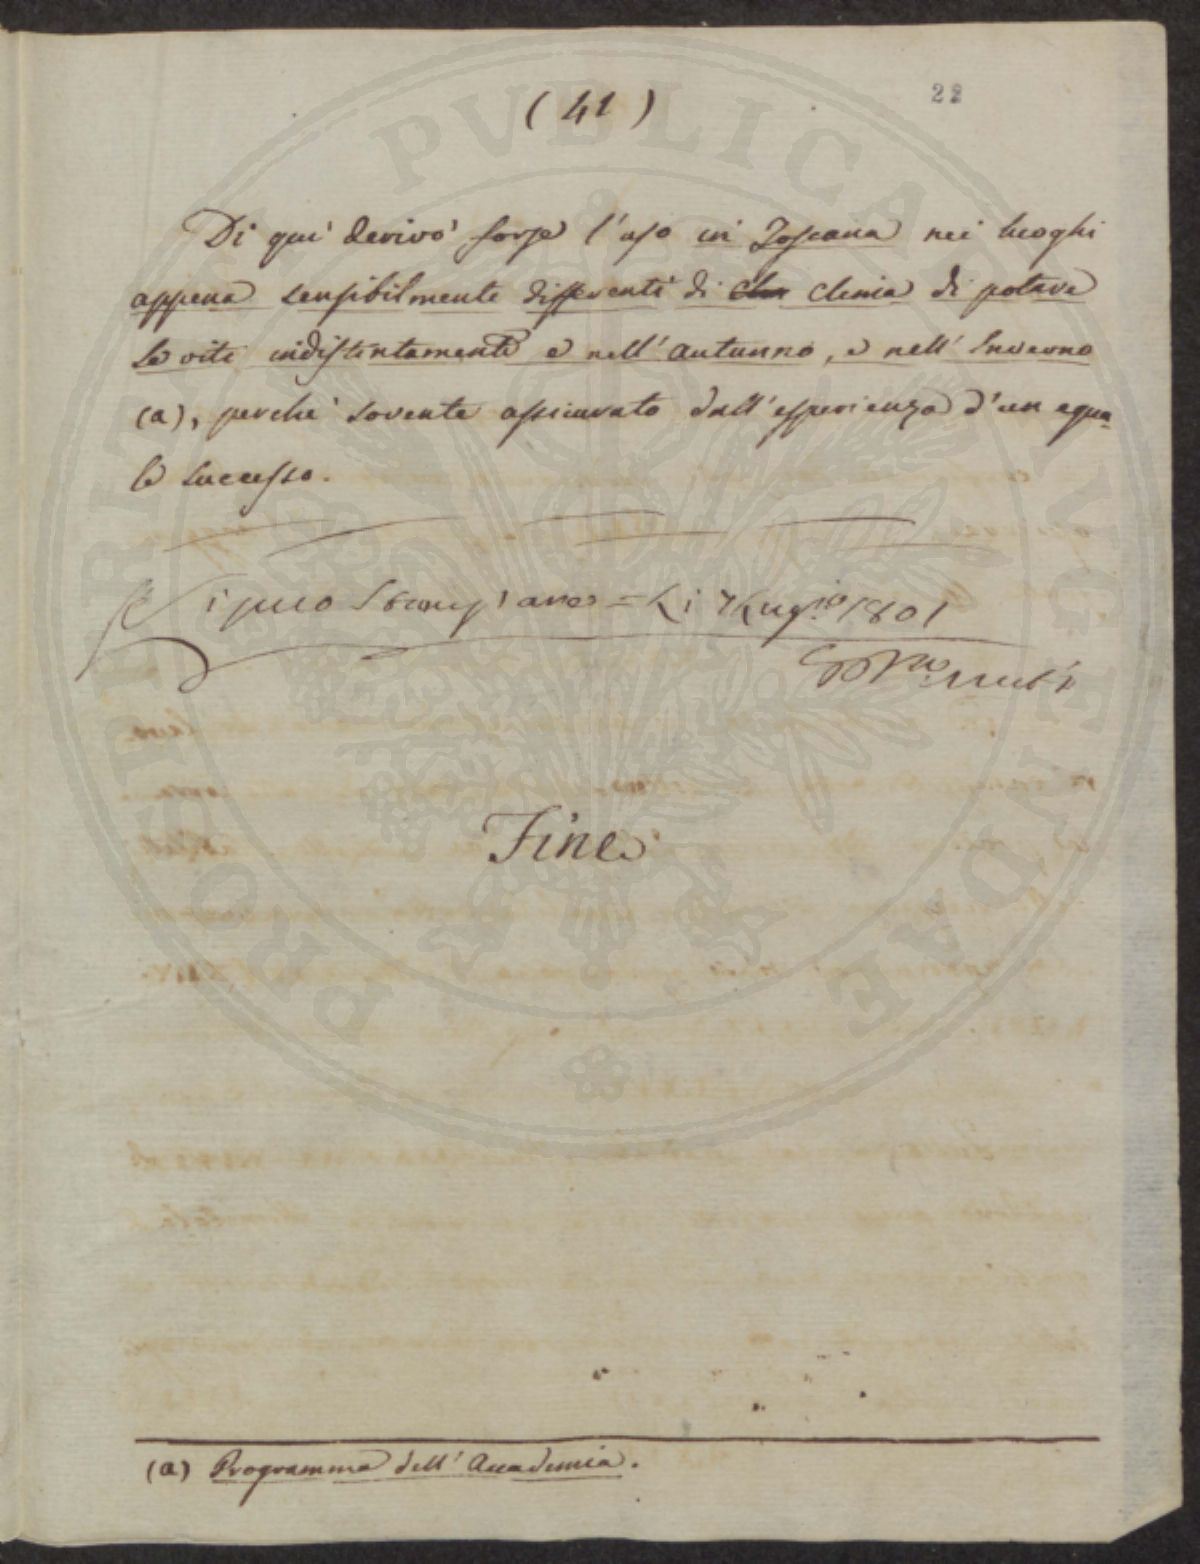 22
(41)
Di qui' derivo' forse l'uso in Toscana nei luoghi
appena sensibilmente differenti di clim climia di potare
le viti indistintamente e nell'autunno, e nell'Inverno
(a), perche' sovente assicurato dall'esperienza d'un egua-
le successo.
Si può Stampare = Li 7 Lug.io 1801
Fine
(a) Programma dell'Accademia.
PROSPERITATI PUBLICAE AUGENDAE